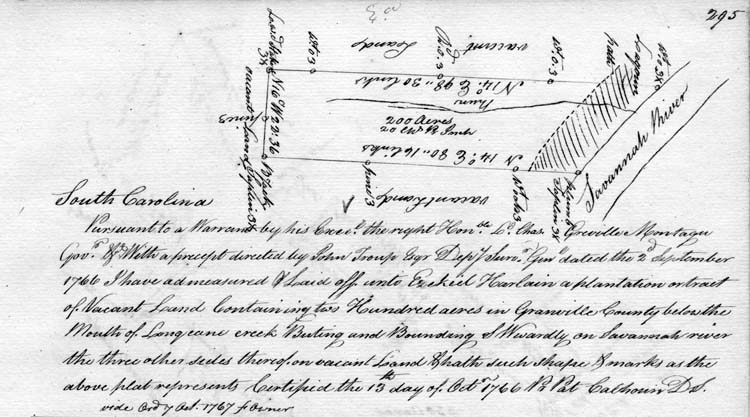 295
vacant
Land
N 14° E 98"50 links
Run
200 Acres
20 Chs Pr Inch
N 14° E 80"16 links
vacant Land
Savannah River
pine 3
W.o 3
W.o 3
South Carolina
Pursuant to a Warrant by his Excely the right Honble Ld Chas Greville Montagu
Govr &c With a precept directed by John Troup Esqr Depy Survr Genl dated the 2d September
1766 I have admeasured & Laid off unto Ezekiel Harlain a plantation or tract
of Vacant Land Containing two Hundred acres in Granville County below the
Mouth of Long cane creek Buting and Bounding SWwardly on Savannah river
the three other sides thereof on vacant Land & hath such shape & marks as the
above plat represents Certified the 13th day of Octr 1766 Pr Pat Calhoun D.S.
vide Ord 7 Oct. 1767 fr Owner